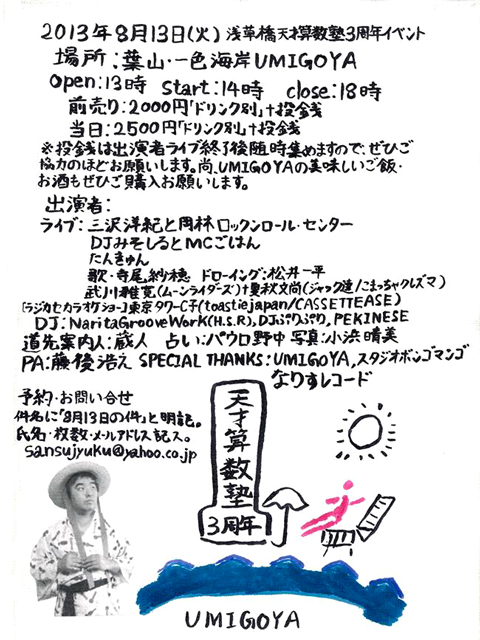 2013年8月13日(火) 浅草橋天才算数塾3周年イベント
場所:葉山・一色海岸UMIGOYA
Open:13時 start:14時 close:18時
前売り:2000円「ドリンク別」+投銭
当日:2500円「ドリンク別」+投銭
※投銭は出演者ライブ終了後随時集めますので、ぜひご
協力のほどお願いします。尚、UMIGOYAの美味しいご飯・
お酒もぜひご購入お願いします。
出演者:
ライブ:三沢洋紀と岡林ロックンロール・センター
DJみそしるとMCごはん
たんきゅん
歌・寺尾紗穂 ドローイング:松井一平
武川雅寛(ムーンライダーズ)+夏秋文尚(ジャック達/こまっちゃクレズマ)
[ラジカセカラオケショー]東京タワーC子(toastiejapan/CASSETTEASE)
DJ:NaritaGrooveWork(H.S.R),DJぷりぷり,PEKINESE
道先案内人:蔵人 占い:パウロ野中 写真:小浜晴美
PA:藤後浩之 SPECIAL THANKS:UMIGOYA,スタジオボンゴマンゴ
なりすレコード
予約・お問い合せ
件名に「8月13日の件」と明記。
氏名・枚数・メールアドレス記入。
sansujyuku@yahoo.co.jp
天才算数塾
3周年
UMIGOYA